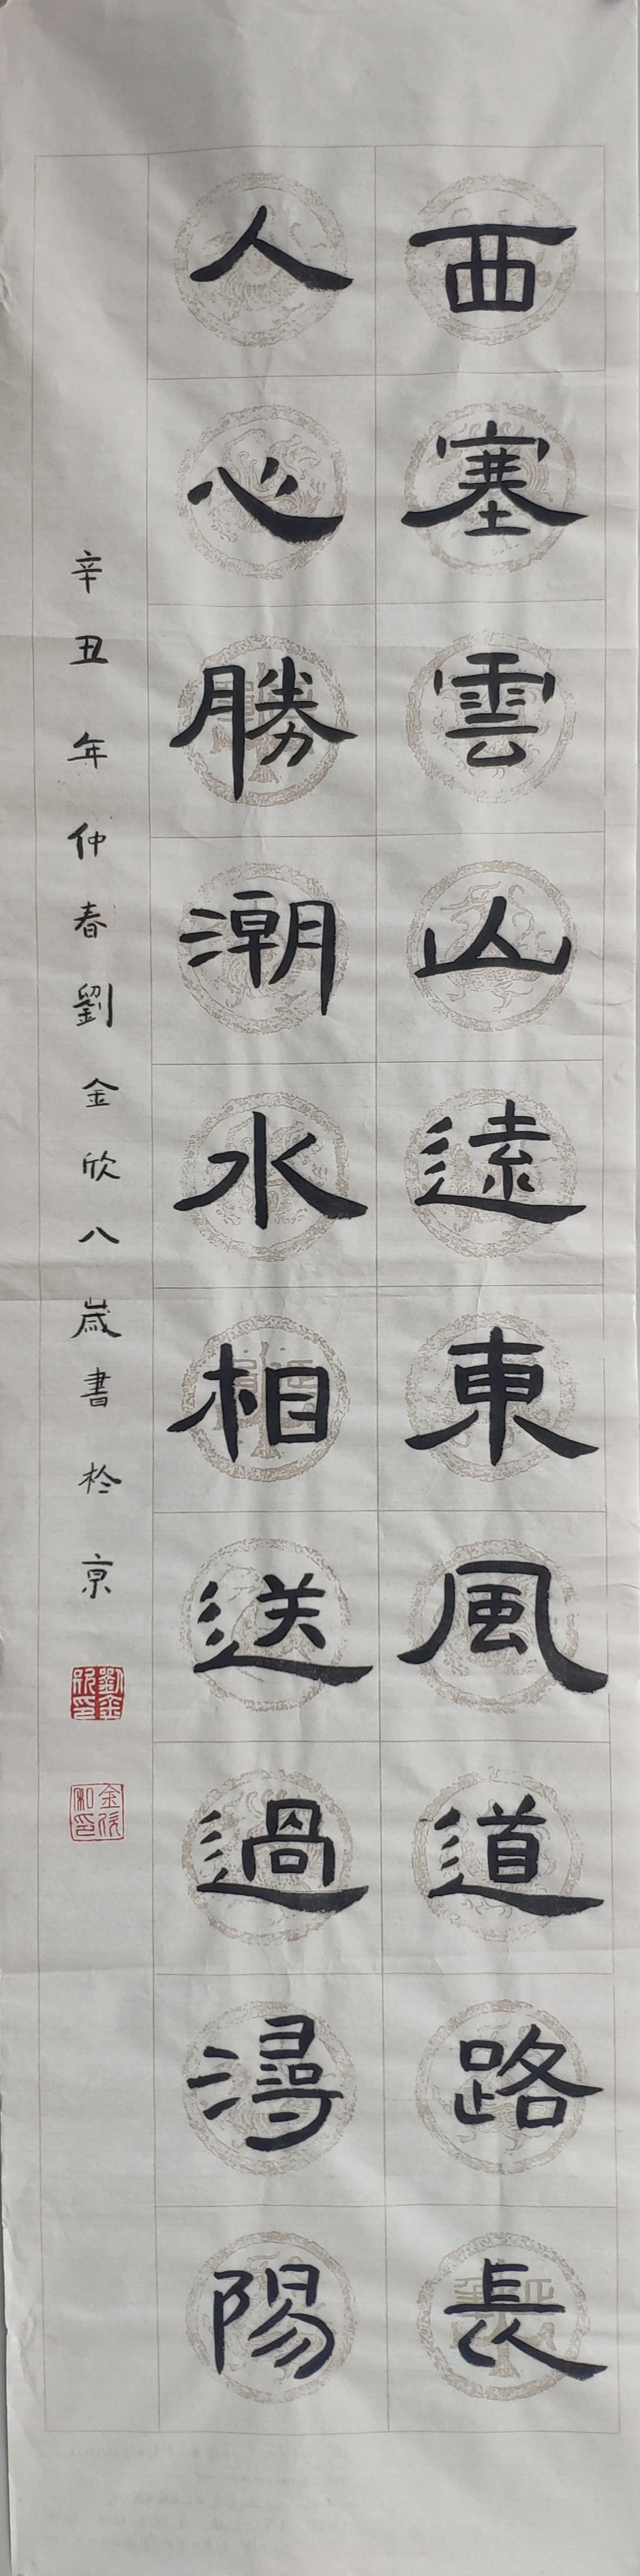 西塞雲山遠東風道路長
人心勝潮水相送過潯陽
辛丑年仲春劉金欣八歲書於京